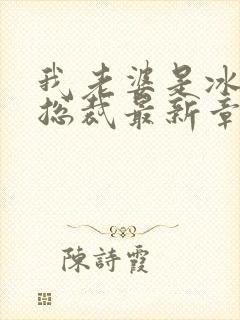 我老婆是冰
总裁最新章
陳詩霞